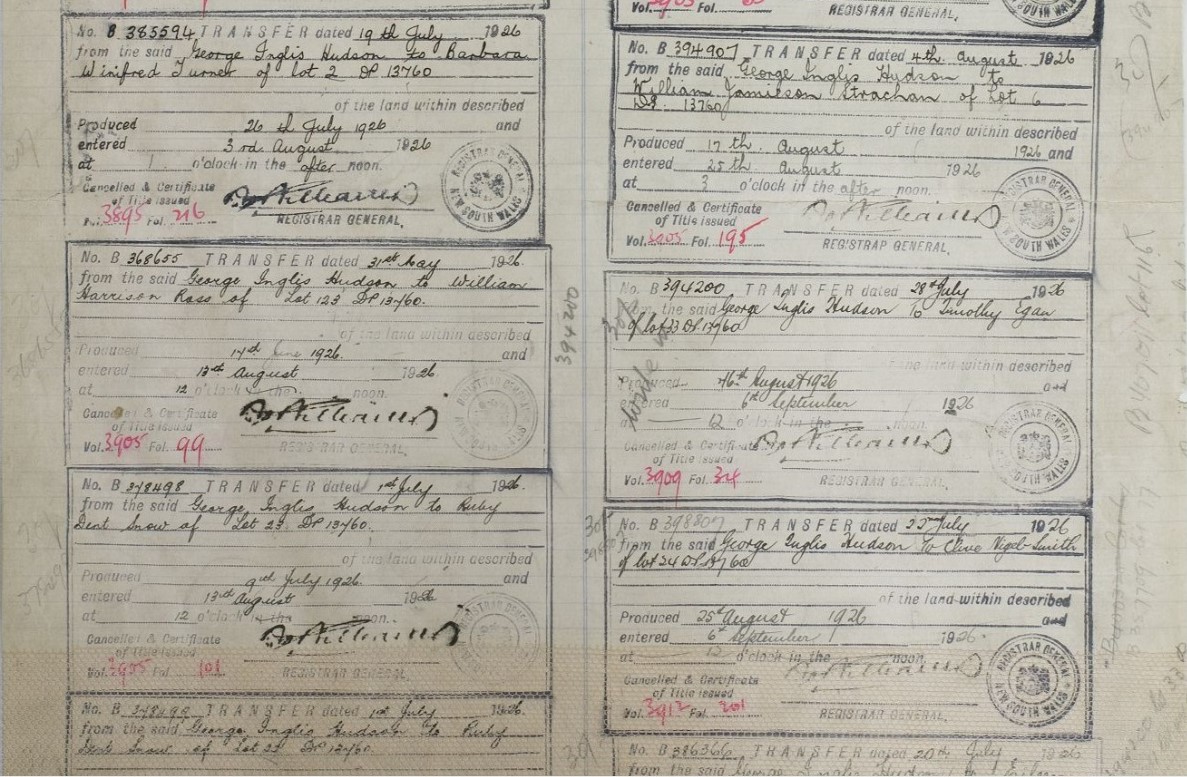 No. B 385594 TRANSFER dated 19th July 1926
from the said George Inglis Hudson to Barbara
Winifred Turner of lot 2 DP 13760
of the land within described
Produced 26 th July 1926 and
entered 3rd August 1926
at 1 o'clock in the after noon.
Cancelled & Certificate
of Title issued
Vol. 3895 Fol. 216
REGISTRAR GENERAL.
No. B 368655 TRANSFER dated 31st May 1926.
from the said George Inglis Hudson to William
Harrison Ross of Lot 123 DP 13760.
of the land within described
Produced 14th June 1926. and
entered 13th August 1926
at 12 o'clock in the noon.
Cancelled & Certificate
of Title issued
Vol. 3905 Fol. 99
REGISTRAR GENERAL.
No. B 378498 TRANSFER dated 1st July 1926.
from the said George Inglis Hudson to Ruby
Dent Snow of Lot 23 DP 13760.
of the land within described
Produced 9th July 1926. and
entered 13th August 1926
at 12 o'clock in the noon.
Cancelled & Certificate
of Title issued
Vol. 3905 Fol. 101
REGISTRAR GENERAL.
No. B TRANSFER dated 1st July 1926.
from the said George Inglis Hudson to Ruby
Dent Snow of Lot DP 13760.
394200
Vol. 3905 Fol.
REGISTRAR GENERAL.
No. B 394907 TRANSFER dated 4th August 1926
from the said George Inglis Hudson to
William Jamieson Strachan of Lot 6
DP. 13760
of the land within described
Produced 17 th August 1926 and
entered 25 th August 1926
at 3 o'clock in the after noon.
Cancelled & Certificate
of Title issued
Vol. 3905 Fol. 195
REGISTRAR GENERAL.
No. B 394200 TRANSFER dated 28th July 1926
from the said George Inglis Hudson to Timothy Egan
of lot DP 13760
of the land within described
Produced 16th August 1926 and
entered 6th September 1926
at 12 o'clock in the noon.
Cancelled & Certificate
of Title issued
Vol. 3909 Fol. 34
REGISTRAR GENERAL.
No. B 398807 TRANSFER dated July 1926
from the said George Inglis Hudson to Clive Smith
of lot 24 DP 13760
of the land within described
Produced 25th August 1926 and
entered 6th September 1926.
at 12 o'clock in the noon
Cancelled & Certificate
of Title issued
Vol. 3912 Fol. 201
REGISTRAR GENERAL.
No. B 386366 TRANSFER dated 20th July 1926
from the said George Inglis Hudson